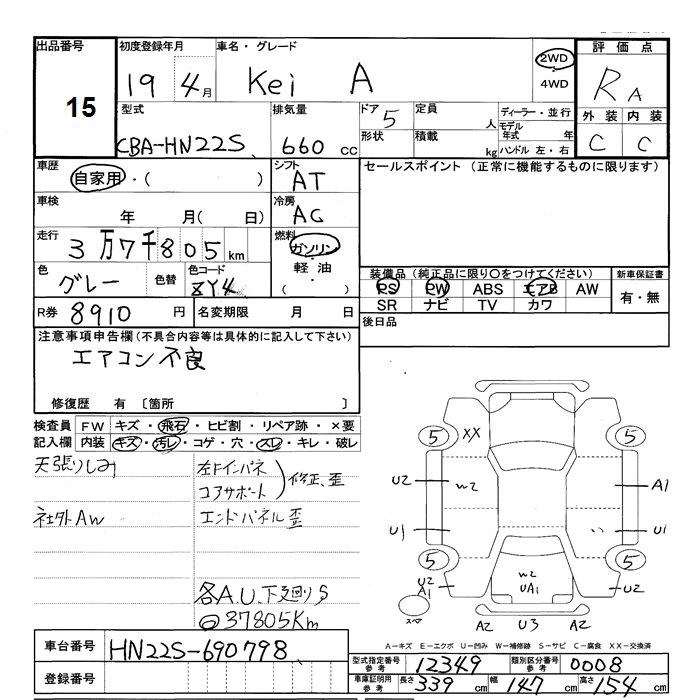 出品番号 初度登録年月 車名・グレード 評価点
15
19 4月 Kei A 2WD 4WD RA
型式 排気量 ドア 5 定員 人 ディーラー・並行
CBA-HN22S 660 cc 形状 積載 kg モデル年式 年 ハンドル 左・右
外装 内装
C C
車歴 自家用・( ) シフト AT
セールスポイント (正常に機能するものに限ります)
車検 年 月( 日) 冷房 AC
走行 3万7千805km 燃料 ガソリン 軽油 ( )
色 グレー 色替 色コード ZY4
装備品 (純正品に限り○をつけてください) 新車保証書
PS PW ABS エアB AW 有・無
SR ナビ TV カワ
R券 8910 円 名変期限 月 日
後日品
注意事項申告欄(不具合内容等は具体的に記入して下さい)
エアコン不良
修復歴 有 〔箇所 〕
検査員 FW キズ・飛石・ヒビ割・リペア跡・×要
記入欄 内装 キズ・汚レ・コゲ・穴・スレ・キレ・破レ
天張りしみ
左Fインパネ
コアサポート
修正、歪
社外AW
エンドパネル歪
各A.U.下廻りS
37805Km
5 XX 5
U2 W2 A1
U1 U1
5 5
U2 A1 W2 UA1 U2
スペア
A2 U3 A2
A－キズ E－エクボ U－凹み W－補修跡 S－サビ C－腐食 XX－交換済
車台番号 HN22S-690798
登録番号
型式指定番号 参考 12349 類別区分番号 参考 0008
車庫証明用 参考 長さ 339 cm 幅 147 cm 高さ 154 cm